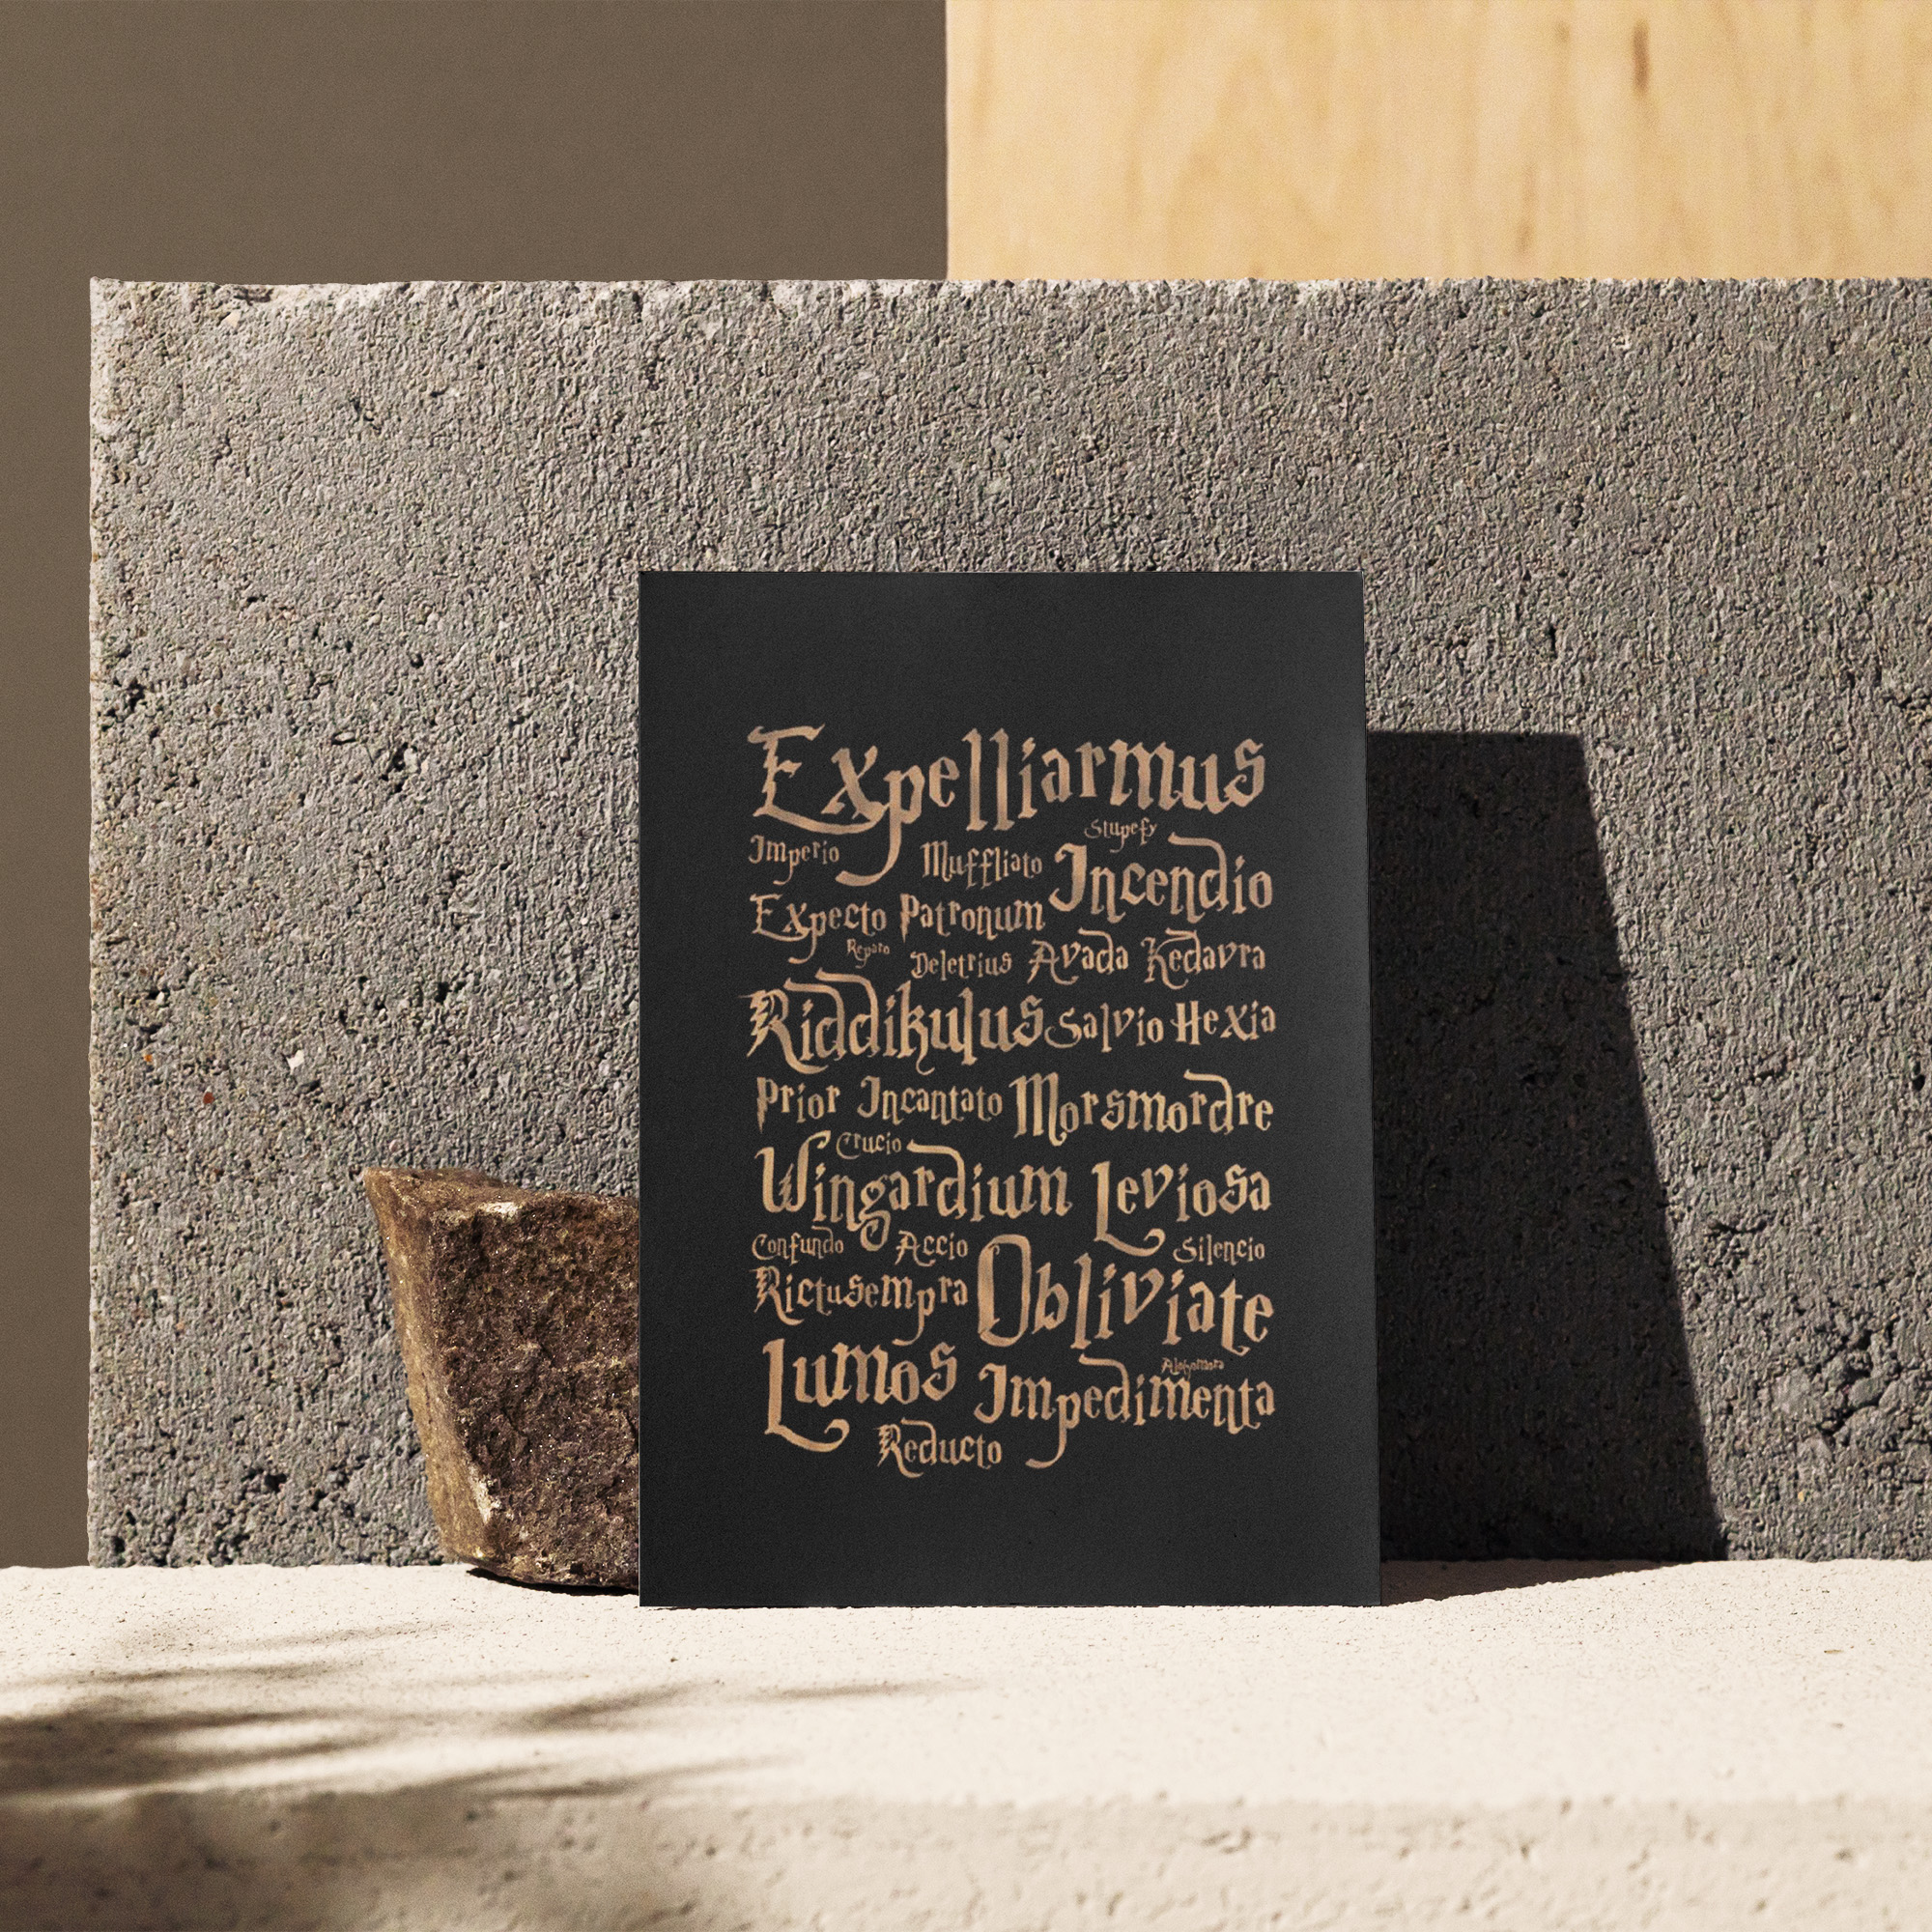 Expelliarmus
Stupefy
Imperio Muffliato Incendio
Expecto Patronum
Reparo Deletrius Avada Kedavra
Riddikulus Salvio Hexia
Prior Incantato Morsmordre
Crucio
Wingardium Leviosa
Confundo Accio Silencio
Rictusempra Obliviate
Alohomora
Lumos Impedimenta
Reducto